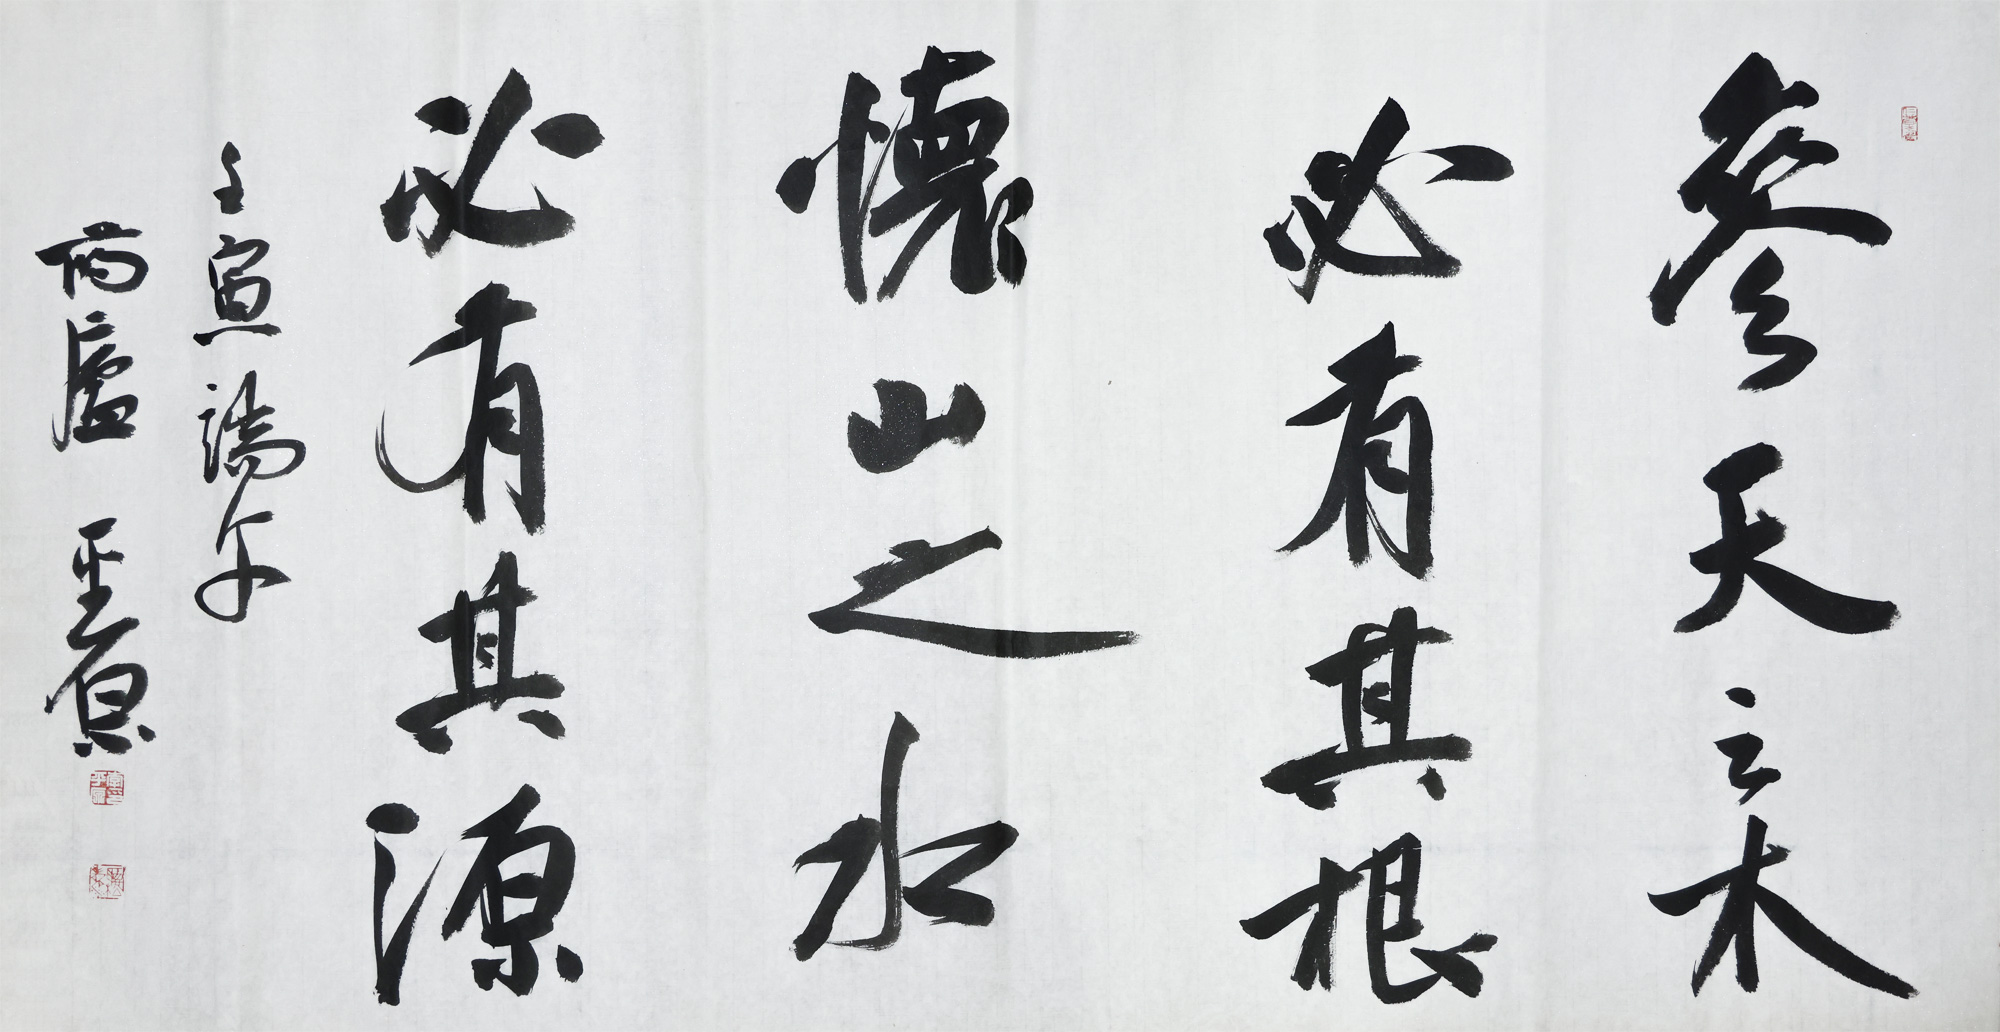 參天之木
必有其根
懷山之水
必有其源
壬寅端午
平原